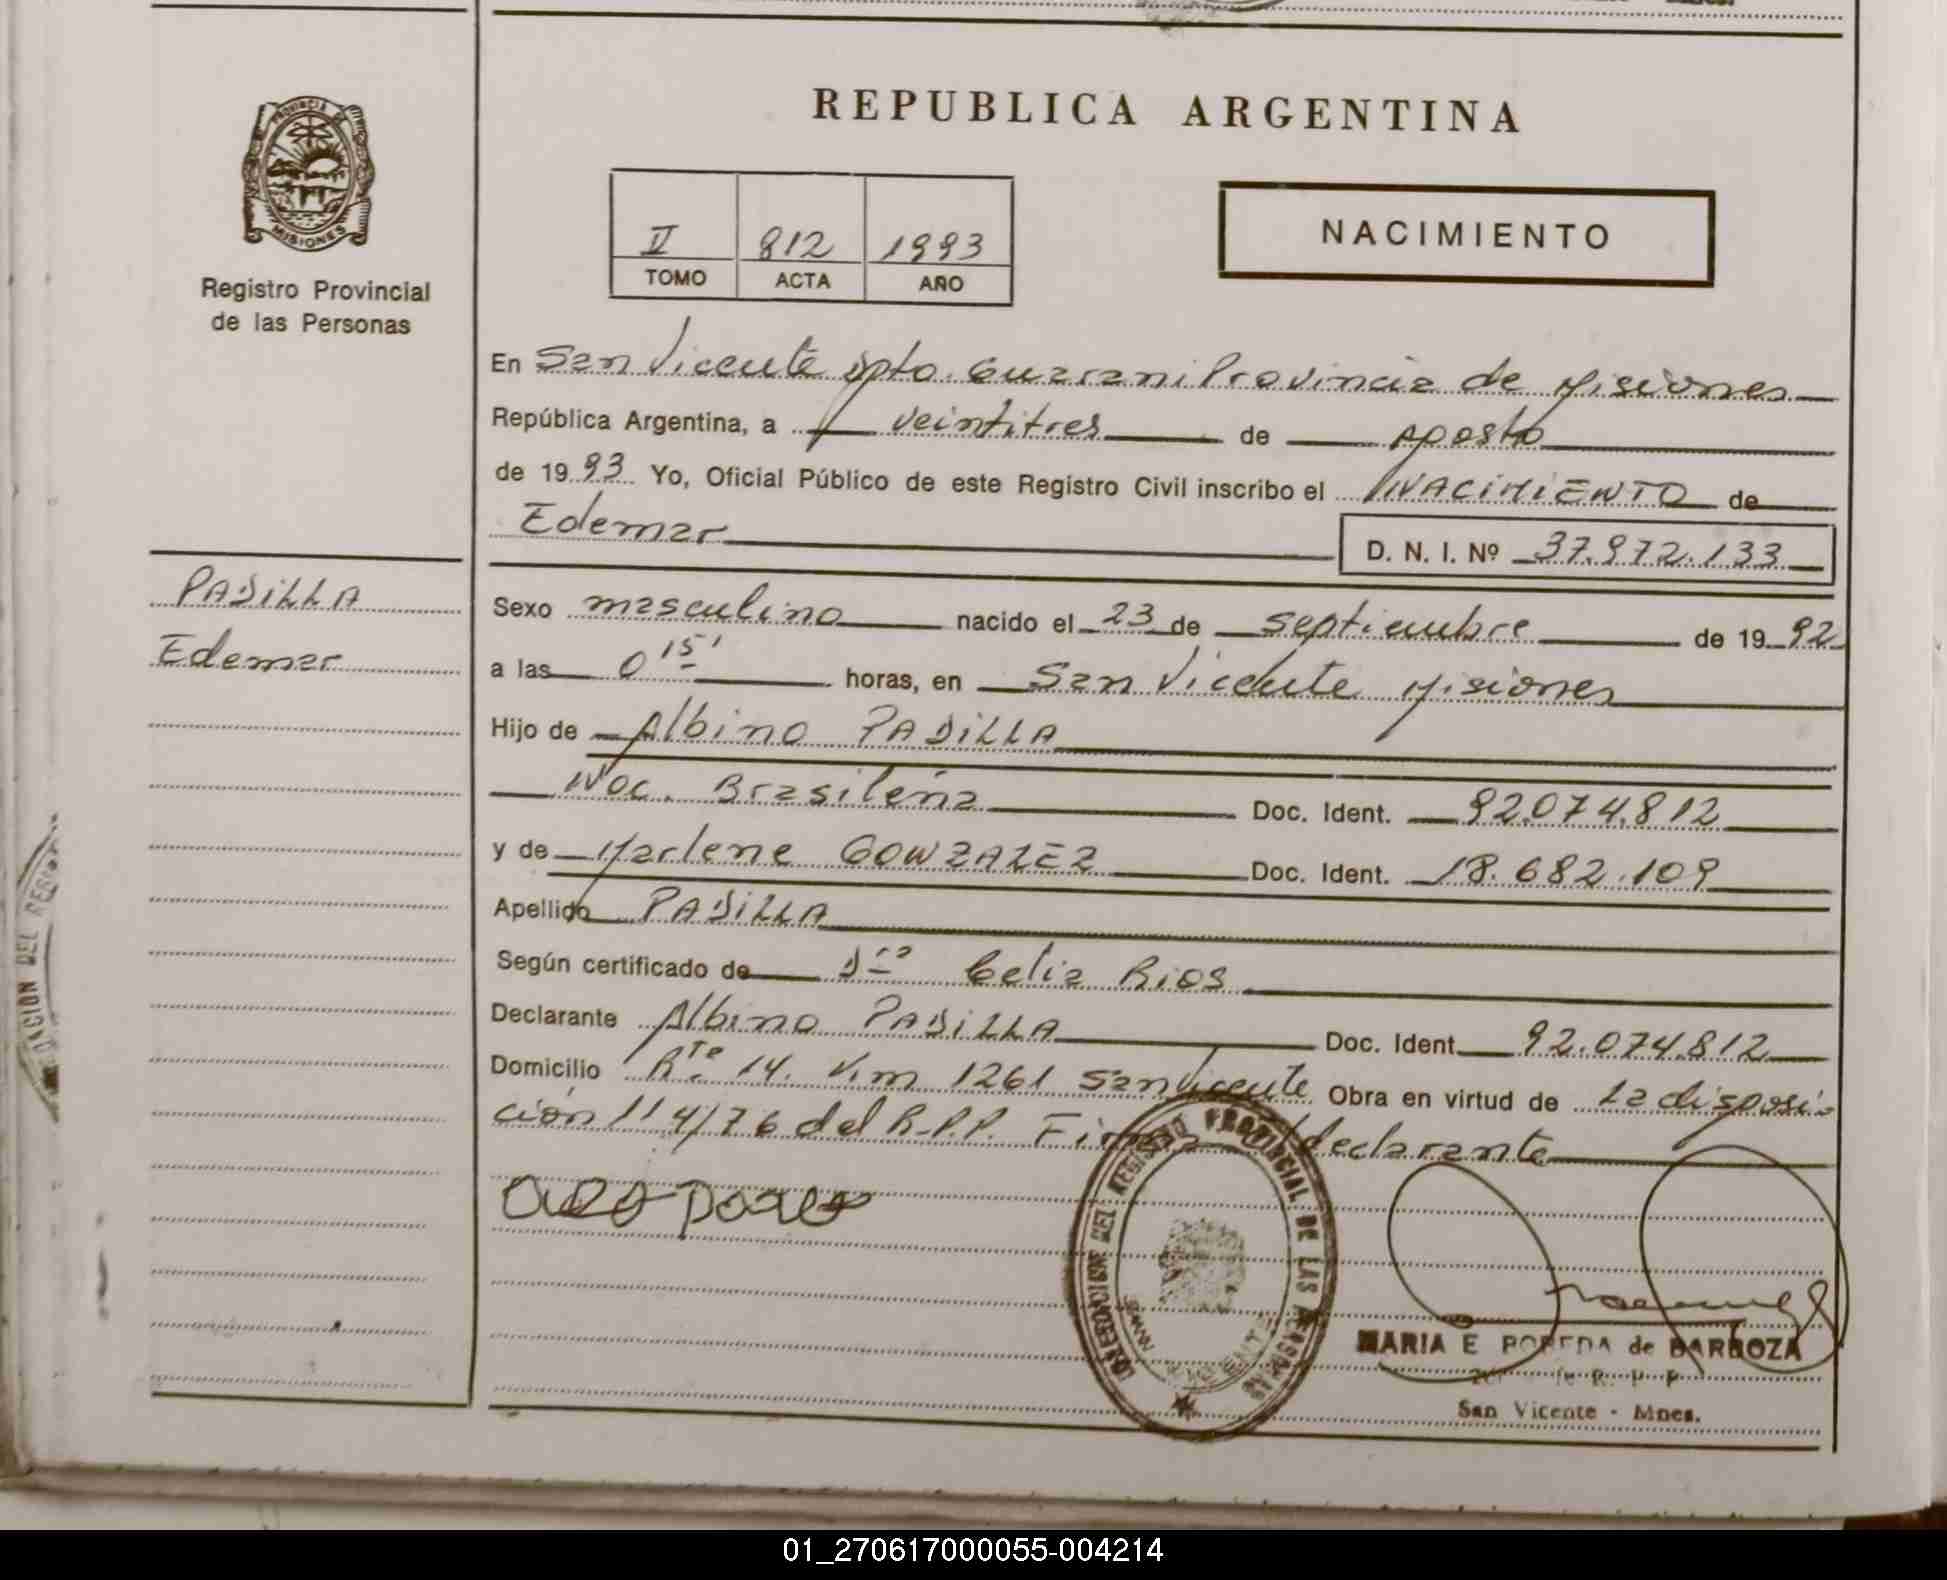 REPUBLICA ARGENTINA
PROVINCIA DE
MISIONES
Registro Provincial
de las Personas
II 812 1993
TOMO ACTA AÑO
NACIMIENTO
En San Vicente Dpto. Guarani Provincia de Misiones
República Argentina, a veintitres de Agosto
de 1993 Yo, Oficial Público de este Registro Civil inscribo el NACIMIENTO de
Edemar D. N. I. Nº 37.972.133
PADILLA
Edemar
Sexo masculino nacido el 23 de septiembre de 1992
a las 0 15' horas, en San Vicente Misiones
Hijo de Albino PADILLA
Nac. Brasileña Doc. Ident. 92.074.812
y de Marlene GONZALEZ Doc. Ident. 18.682.109
Apellido PADILLA
Según certificado de Dra Celia Rios
Declarante Albino PADILLA Doc. Ident. 92.074.812
Domicilio Rta 14. Km 1261 San Vicente Obra en virtud de La disposi-
ción 114/76 del R.P.P. Firma declarante
DELEGACION DEL REGISTRO PROVINCIAL DE LAS PERSONAS
MARIA E POREDA de BARBOZA
R. P. P.
San Vicente - Mnes.
01_270617000055-004214